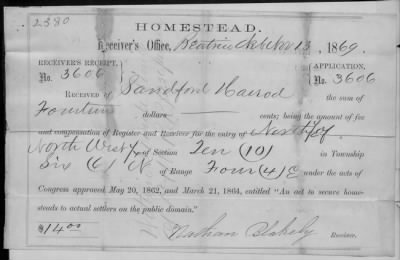 2380
HOMESTEAD.
Receiver's Office, Beatrice Neb Nov 13, 1869.
RECEIVER'S RECEIPT, No. 3606
APPLICATION, No. 3606
RECEIVED OF Sandford the sum of
Fourteen dollars — cents; being the amount of fee
and compensation of Register and Receiver for the entry of
North West of Section Ten (10) in Township
Six (6) N of Range Four (4) E under the acts of
Congress approved May 20, 1862, and March 21, 1864, entitled "An act to secure home-
steads to actual settlers on the public domain."
$14.00 Nathan Blakely Receiver.